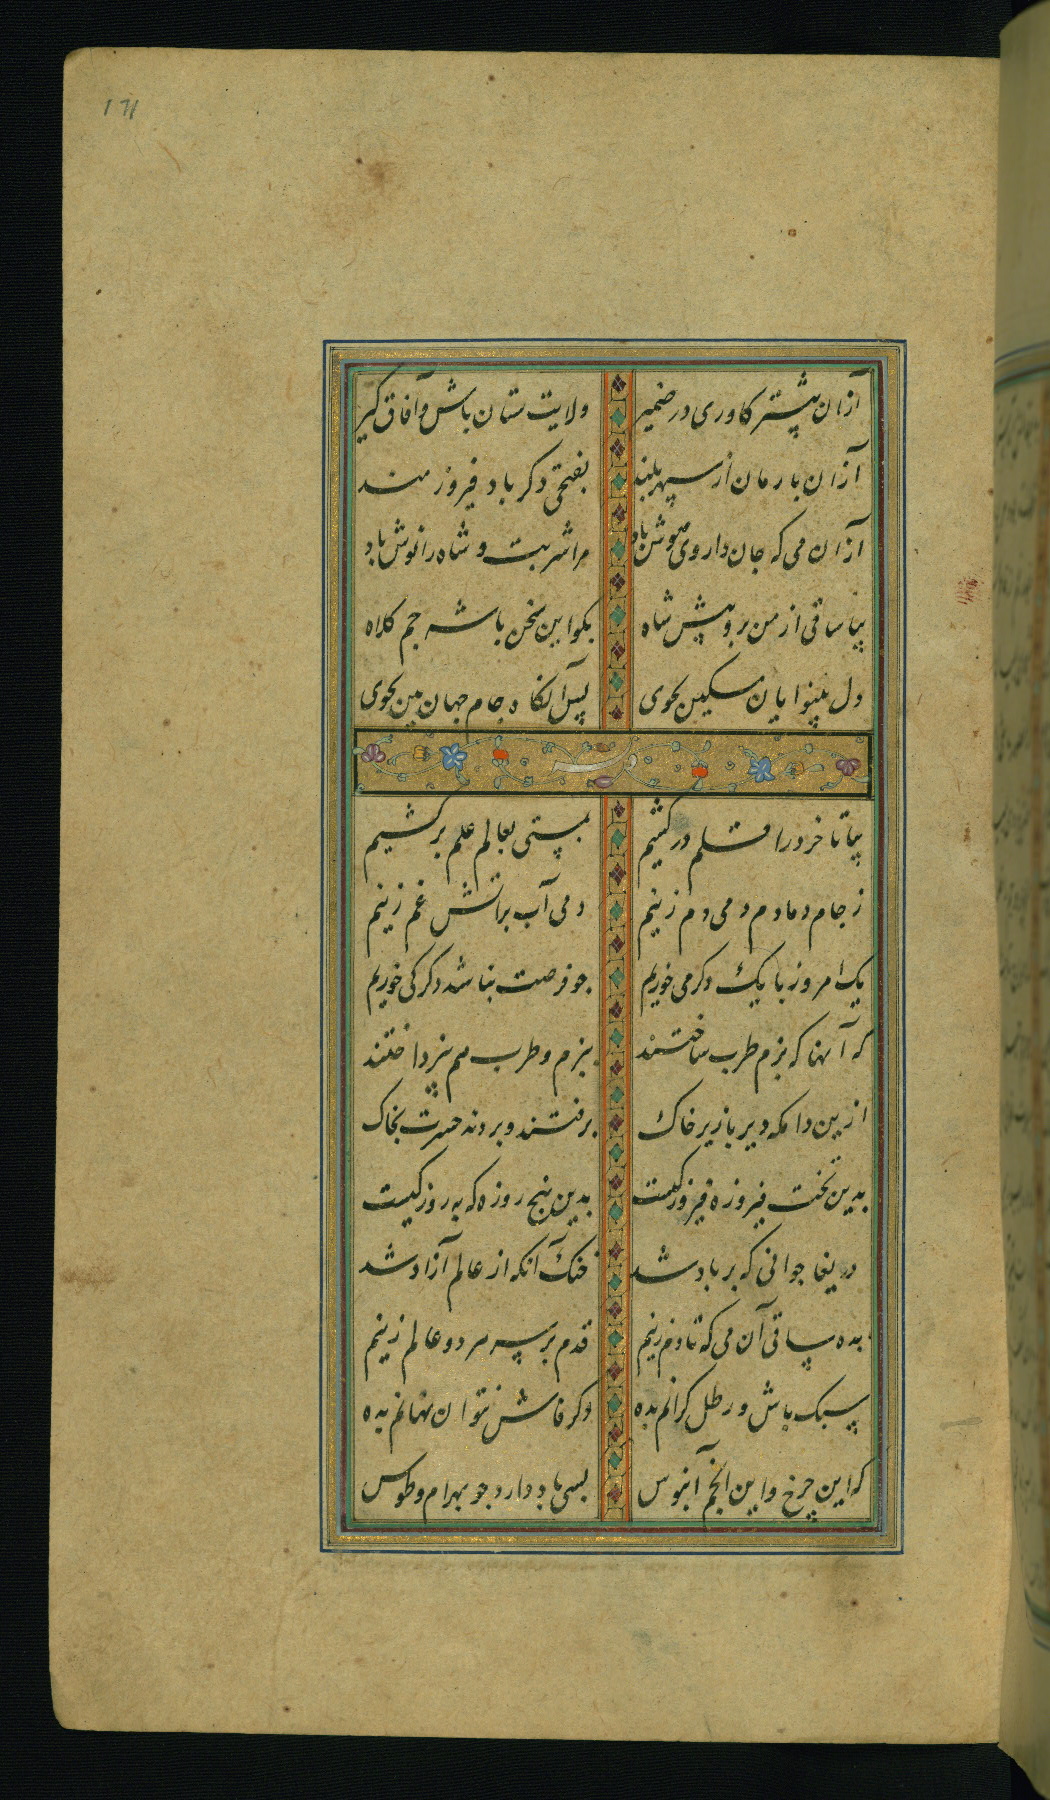 171
ازان پیشتر کاوری در ضمیر ولایت ستان باش و آفاق گیر
ازان بارمان از سپهر بلند بفتحی دکر باد فیروزمند
ازان می که جان داروی هوش باد مرا شربت و شاه را نوش باد
بیا ساقی از من برو پیش شاه بکو این سخن با شه جم کلاه
دل بینوایان مسکین بجوی پس آنکاه جام جهان بین بجوی
بیا تا خرد را قلم درکشیم بمستی بعالم علم برکشیم
ز جام دمادم دمی دم زنیم دمی آب بر آتش غم زنیم
یک امروز با یک دکر می خوریم جو فرصت نباشد دکر کی خوریم
که آنها که بزم طرب ساختند ببزم و طرب هم نپرداختند
ازین دامکه دیر باز زیر خاک برفتند و بردند حسرت بخاک
بدین تخت فیروزه فیروز کیست بدین پنج روزه که به روز کیست
دریغا جوانی که بر باد شد خنک آنکه از عالم آزاد شد
بده ساقی آن می که تا دم زنیم قدم بر سر هر دو عالم زنیم
سبک باش و رطل کرانم بده وکر فاش نتوان نهانم بده
که این چرخ و این انجم آبنوس بسی یاد دارد جو بهرام و طوس